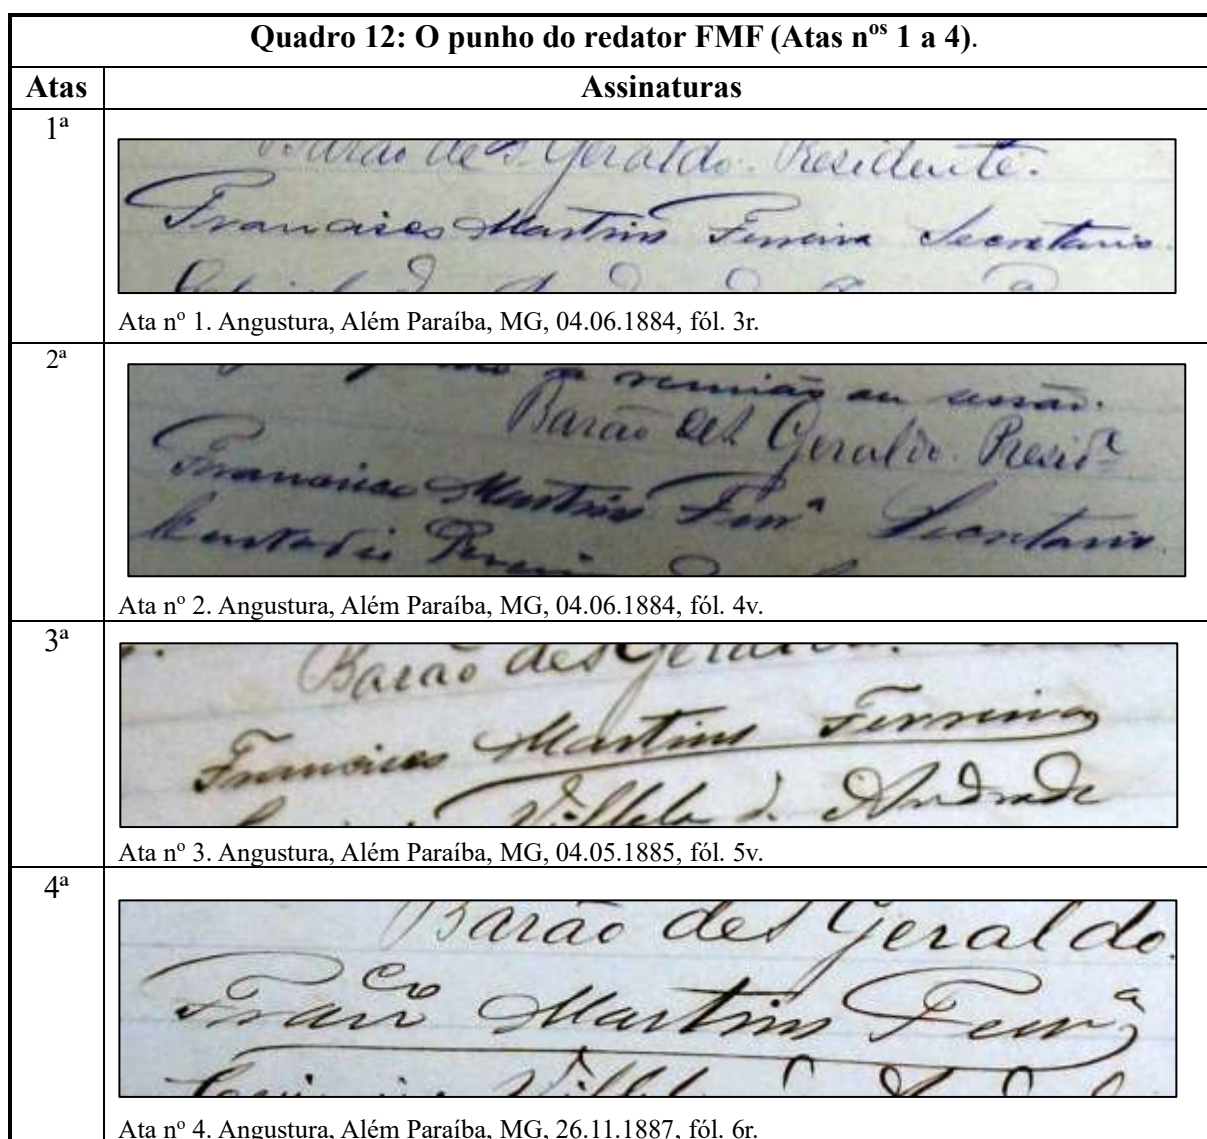 Quadro 12: O punho do redator FMF (Atas nos 1 a 4).
Atas Assinaturas
1ª
Barão de S Geraldo. Presidente.
Francisco Martins Ferreira Secretario.
Ata nº 1. Angustura, Além Paraíba, MG, 04.06.1884, fól. 3r.
2ª
a reunião ou sessão.
Barão de S Geraldo. Presid.e
Francisco Martins Ferr.a Secretario.
Custodio Pereira
Ata nº 2. Angustura, Além Paraíba, MG, 04.06.1884, fól. 4v.
3ª
Barão de S Geraldo.
Francisco Martins Ferreira
Villela d. Andrade
Ata nº 3. Angustura, Além Paraíba, MG, 04.05.1885, fól. 5v.
4ª
Barão de S Geraldo.
Franco Martins Ferr.a
Villela
Ata nº 4. Angustura, Além Paraíba, MG, 26.11.1887, fól. 6r.